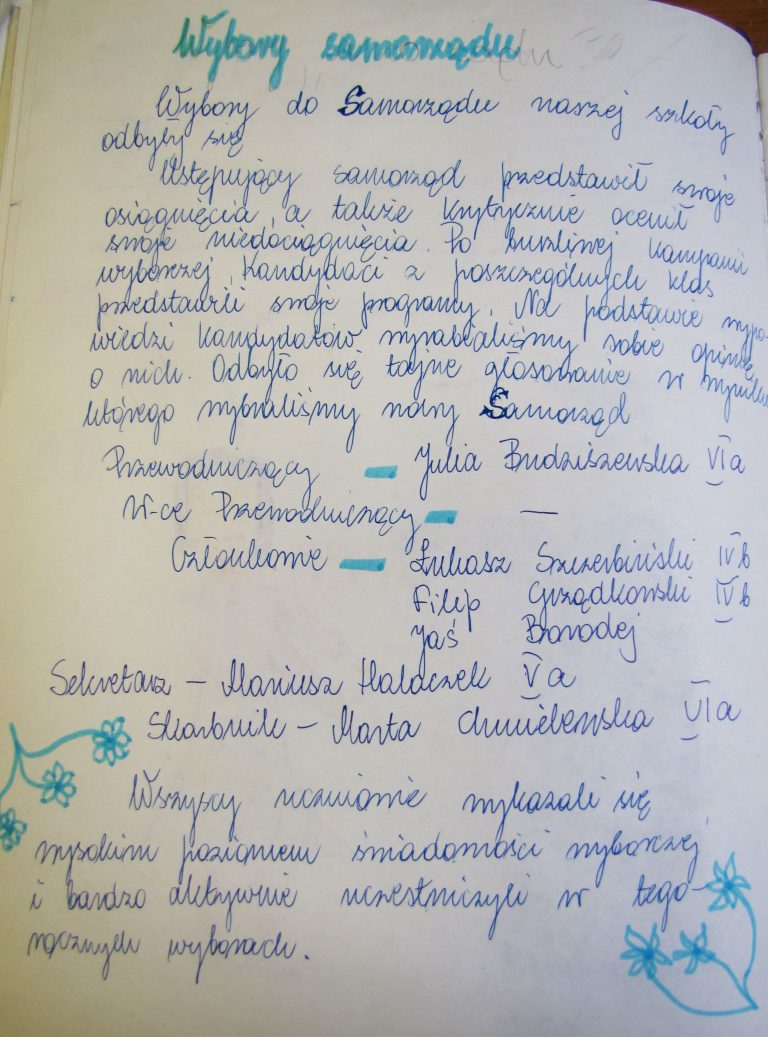 Wybory samorządu
Wybory do Samorządu naszej szkoły
odbyły się
Ustępujący samorząd przedstawił swoje
osiągnięcia, a także krytycznie ocenił
swoje niedociągnięcia. Po burzliwej kampanii
wyborczej, kandydaci z poszczególnych klas
przedstawili swoje programy. Na podstawie wypo-
wiedzi kandydatów wyrabialiśmy sobie opinię
o nich. Odbyło się tajne głosowanie w wyniku
którego wybraliśmy nowy Samorząd
Przewodniczący - Julia Budziszewska VIa
W-ce Przewodniczący - —
Członkowie - Łukasz Szczerbiński IVb
Filip Grządkowski IVb
Jaś Borodej
Sekretarz - Mariusz Halaczek Va
Skarbnik - Marta Chmielewska VIa
Wszyscy uczniowie wykazali się
wysokim poziomem świadomości wyborczej
i bardzo aktywnie uczestniczyli w tego-
rocznych wyborach.